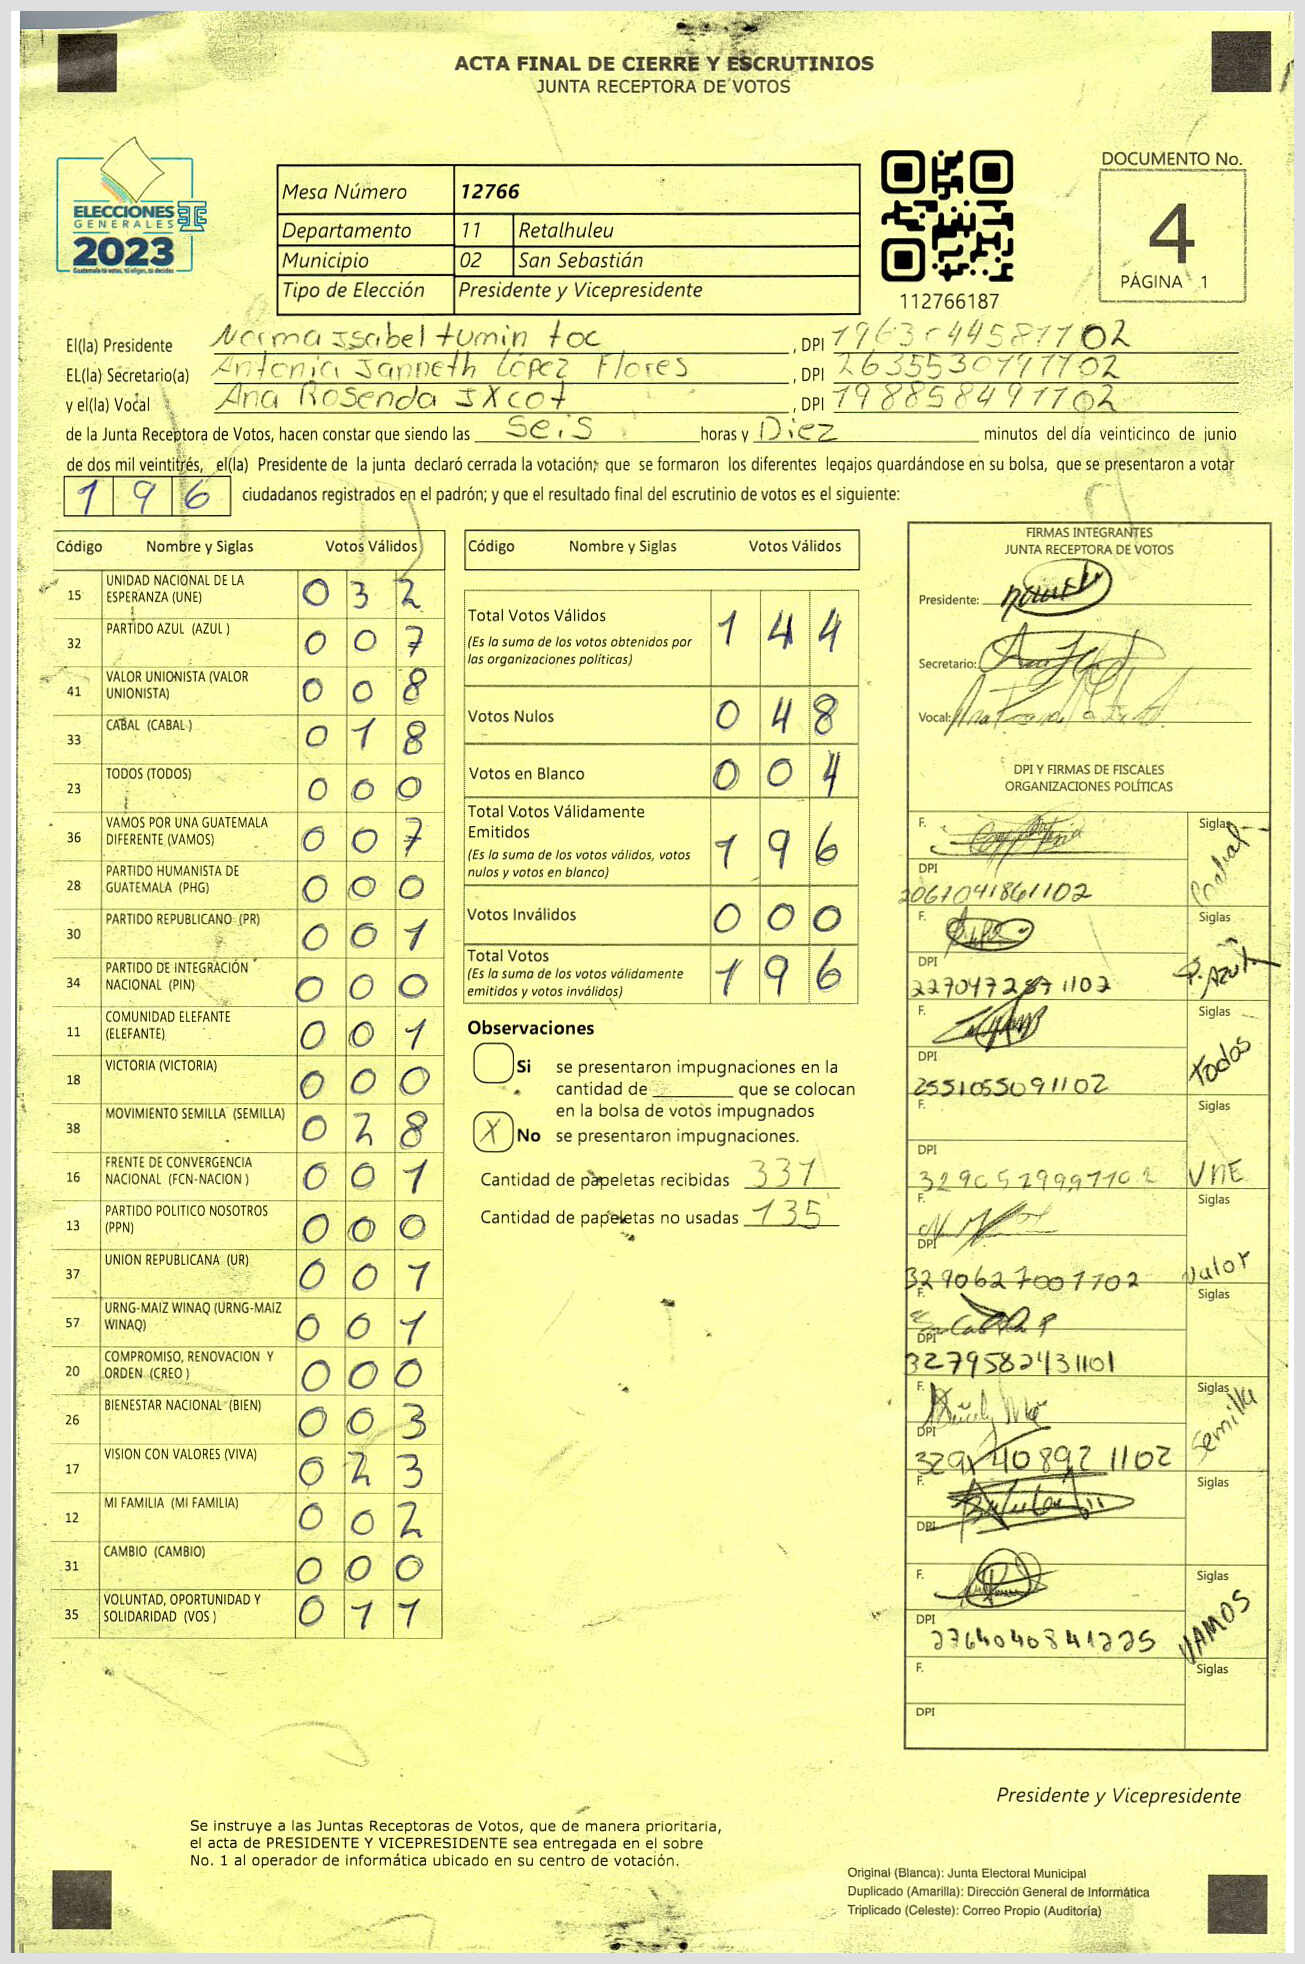 ACTA FINAL DE CIERRE Y ESCRUTINIOS
JUNTA RECEPTORA DE VOTOS
ELECCIONES
GENERALES
2023
Mesa Número 12766
Departamento 11 Retalhuleu
Municipio 02 San Sebastián
Tipo de Elección Presidente y Vicepresidente
112766187
DOCUMENTO No.
4
PÁGINA 1
El(la) Presidente Norma Isabel tumin toc, DPI 1963044581102
EL(la) Secretario(a) Antonia Janneth López Flores, DPI
y el(la) Vocal Ana Rosenda Ixcot, DPI 1988584971102
de la Junta Receptora de Votos, hacen constar que siendo las Seis horas y Diez minutos del día veinticinco de junio
de dos mil veintitrés, el(la) Presidente de la junta declaró cerrada la votación; que se formaron los diferentes legajos guardándose en su bolsa, que se presentaron a votar
196 ciudadanos registrados en el padrón; y que el resultado final del escrutinio de votos es el siguiente:
Código Nombre y Siglas Votos Válidos
15 UNIDAD NACIONAL DE LA ESPERANZA (UNE) 032
32 PARTIDO AZUL (AZUL ) 007
41 VALOR UNIONISTA (VALOR UNIONISTA) 008
33 CABAL (CABAL ) 018
23 TODOS (TODOS) 000
36 VAMOS POR UNA GUATEMALA DIFERENTE (VAMOS) 007
28 PARTIDO HUMANISTA DE GUATEMALA (PHG) 000
30 PARTIDO REPUBLICANO (PR) 001
34 PARTIDO DE INTEGRACIÓN NACIONAL (PIN) 000
11 COMUNIDAD ELEFANTE (ELEFANTE) 001
18 VICTORIA (VICTORIA) 000
38 MOVIMIENTO SEMILLA (SEMILLA) 028
16 FRENTE DE CONVERGENCIA NACIONAL (FCN-NACION ) 001
13 PARTIDO POLITICO NOSOTROS (PPN) 000
37 UNION REPUBLICANA (UR) 001
57 URNG-MAIZ WINAQ (URNG-MAIZ WINAQ) 001
20 COMPROMISO, RENOVACION Y ORDEN (CREO ) 000
26 BIENESTAR NACIONAL (BIEN) 003
17 VISION CON VALORES (VIVA) 023
12 MI FAMILIA (MI FAMILIA) 002
31 CAMBIO (CAMBIO) 000
35 VOLUNTAD, OPORTUNIDAD Y SOLIDARIDAD (VOS ) 011
Código Nombre y Siglas Votos Válidos
Total Votos Válidos 144
(Es la suma de los votos obtenidos por
las organizaciones políticas)
Votos Nulos 048
Votos en Blanco 004
Total Votos Válidamente
Emitidos 196
(Es la suma de los votos válidos, votos
nulos y votos en blanco)
Votos Inválidos 000
Total Votos 196
(Es la suma de los votos válidamente
emitidos y votos inválidos)
Observaciones
Si se presentaron impugnaciones en la
cantidad de ________ que se colocan
en la bolsa de votos impugnados
X No se presentaron impugnaciones.
Cantidad de papeletas recibidas 331
Cantidad de papeletas no usadas 135
FIRMAS INTEGRANTES
JUNTA RECEPTORA DE VOTOS
Presidente:
Secretario:
Vocal:
DPI Y FIRMAS DE FISCALES
ORGANIZACIONES POLÍTICAS
F. Siglas
DPI
2061041861102
F. Siglas P. Azul
DPI
F. Siglas Todos
DPI
2551055091102
F. Siglas UNE
DPI
F. Siglas Valor
DPI
3290627001102
F. Siglas
DPI
3279582431101
F. Siglas Semilla
DPI
F. Siglas
DPI
F. Siglas VAMOS
DPI
2764040841225
F. Siglas
DPI
Presidente y Vicepresidente
Se instruye a las Juntas Receptoras de Votos, que de manera prioritaria,
el acta de PRESIDENTE Y VICEPRESIDENTE sea entregada en el sobre
No. 1 al operador de informática ubicado en su centro de votación.
Original (Blanca): Junta Electoral Municipal
Duplicado (Amarilla): Dirección General de Informática
Triplicado (Celeste): Correo Propio (Auditoría)